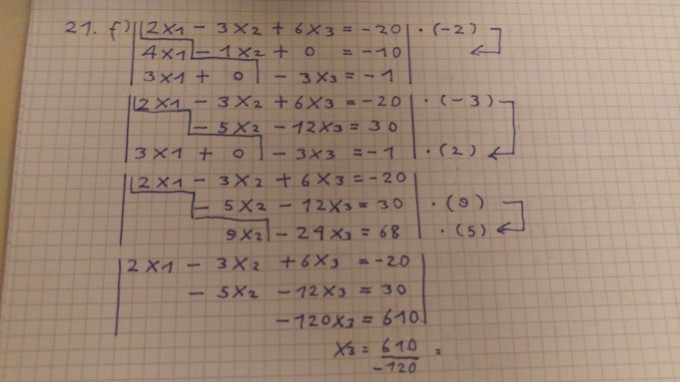 21. f) 2x1 - 3x2 + 6x3 = -20 · (-2)
4x1 - 1x2 + 0 = -10
3x1 + 0 - 3x3 = -1
2x1 - 3x2 + 6x3 = -20 · (-3)
- 5x2 - 12x3 = 30
3x1 + 0 - 3x3 = -1 · (2)
2x1 - 3x2 + 6x3 = -20
- 5x2 - 12x3 = 30 · (9)
9x2 - 24x3 = 68 · (5)
2x1 - 3x2 + 6x3 = -20
- 5x2 - 12x3 = 30
-120x3 = 610
x3 = 610 =
-120